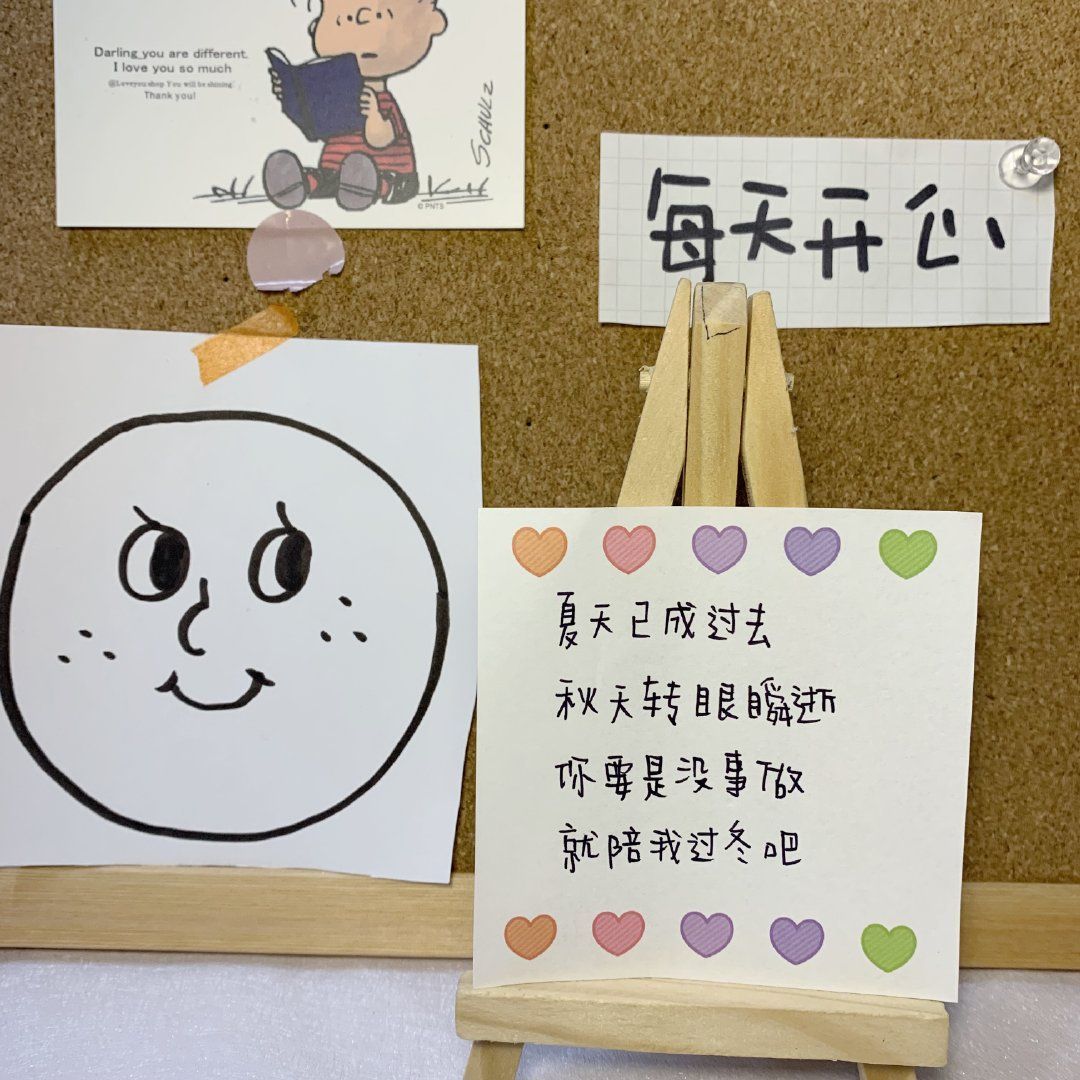 Darling you are different.
I love you so much
@Loveyou shop You will be shining!
Thank you!
SCHULZ
© PNTS
每天开心
夏天已成过去
秋天转眼瞬逝
你要是没事做
就陪我过冬吧